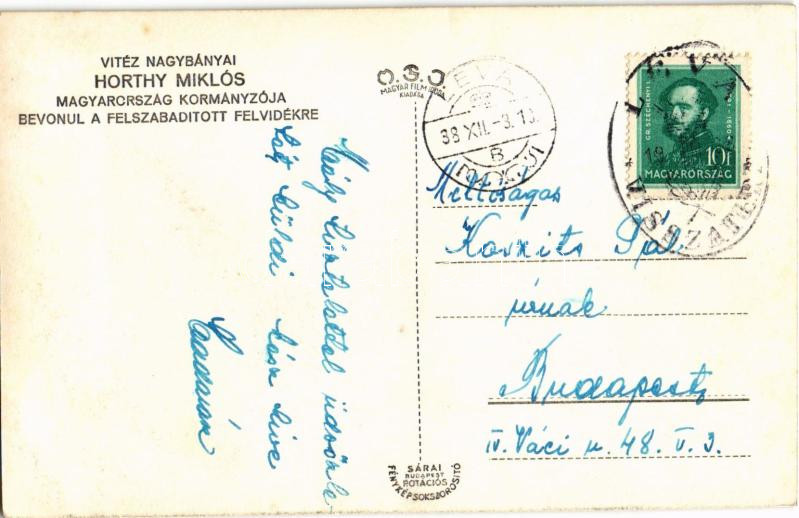 VITÉZ NAGYBÁNYAI
HORTHY MIKLÓS
MAGYARORSZÁG KORMÁNYZÓJA
BEVONUL A FELSZABADITOTT FELVIDÉKRE
O.S.O.
MAGYAR FILM IRODA
KIADÁSA
LÉVA
38 XII. -3. 13
B
LÉVA
VISSZATÉRT
GR. SZÉCHENYI I.
10f
MAGYARORSZÁG
Mély tisztelettel üdvözle
küldi
Méltóságos
Pál
úrnak
Budapest
IV. Váci u. 48. V. 3.
SÁRAI
BUDAPEST
ROTÁCIÓS
FÉNYKÉPSOKSZOROSITÓ